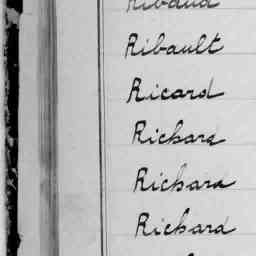 Ribaud
Ribault
Ricard
Richard
Richard
Richard